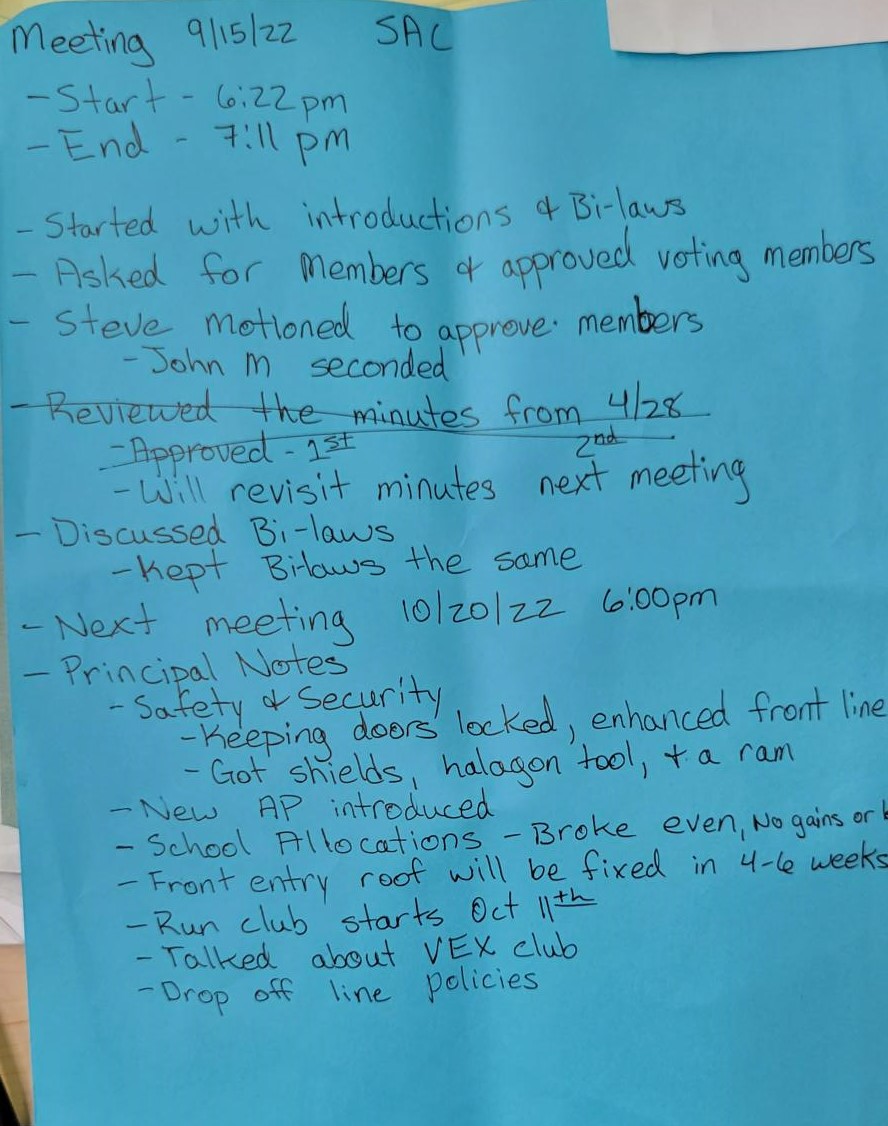 Meeting 9/15/22 SAC
- Start - 6:22 pm
- End - 7:11 pm
- Started with introductions & Bi-laws
- Asked for Members & approved voting members
- Steve motioned to approve members
- John M seconded
- Reviewed the minutes from 4/28
- Approved - 1st 2nd
- Will revisit minutes next meeting
- Discussed Bi-laws
- Kept Bi-laws the same
- Next meeting 10/20/22 6:00pm
- Principal Notes
- Safety & Security
- Keeping doors locked, enhanced front line
- Got shields, halagon tool, + a ram
- New AP introduced
- School Allocations - Broke even, No gains or
- Front entry roof will be fixed in 4-6 weeks
- Run club starts Oct 11th
- Talked about VEX club
- Drop off line policies